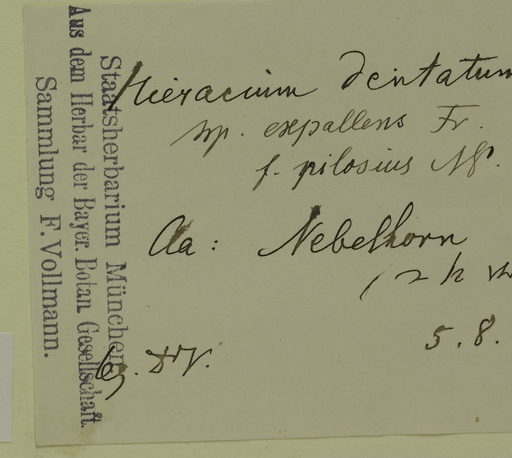 Staatsherbarium München
Aus dem Herbar der Bayer. Botan. Gesellschaft.
Sammlung F. Vollmann.
Hieracium dentatum
sp. expallens Fr.
f. pilosius NP.
Aa: Nebelhorn
5.8.